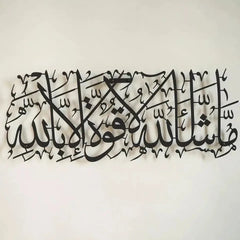 مَا شَاءَ اللّٰه لَا قُوَّةَ إِلَّا بِاللّٰهِ